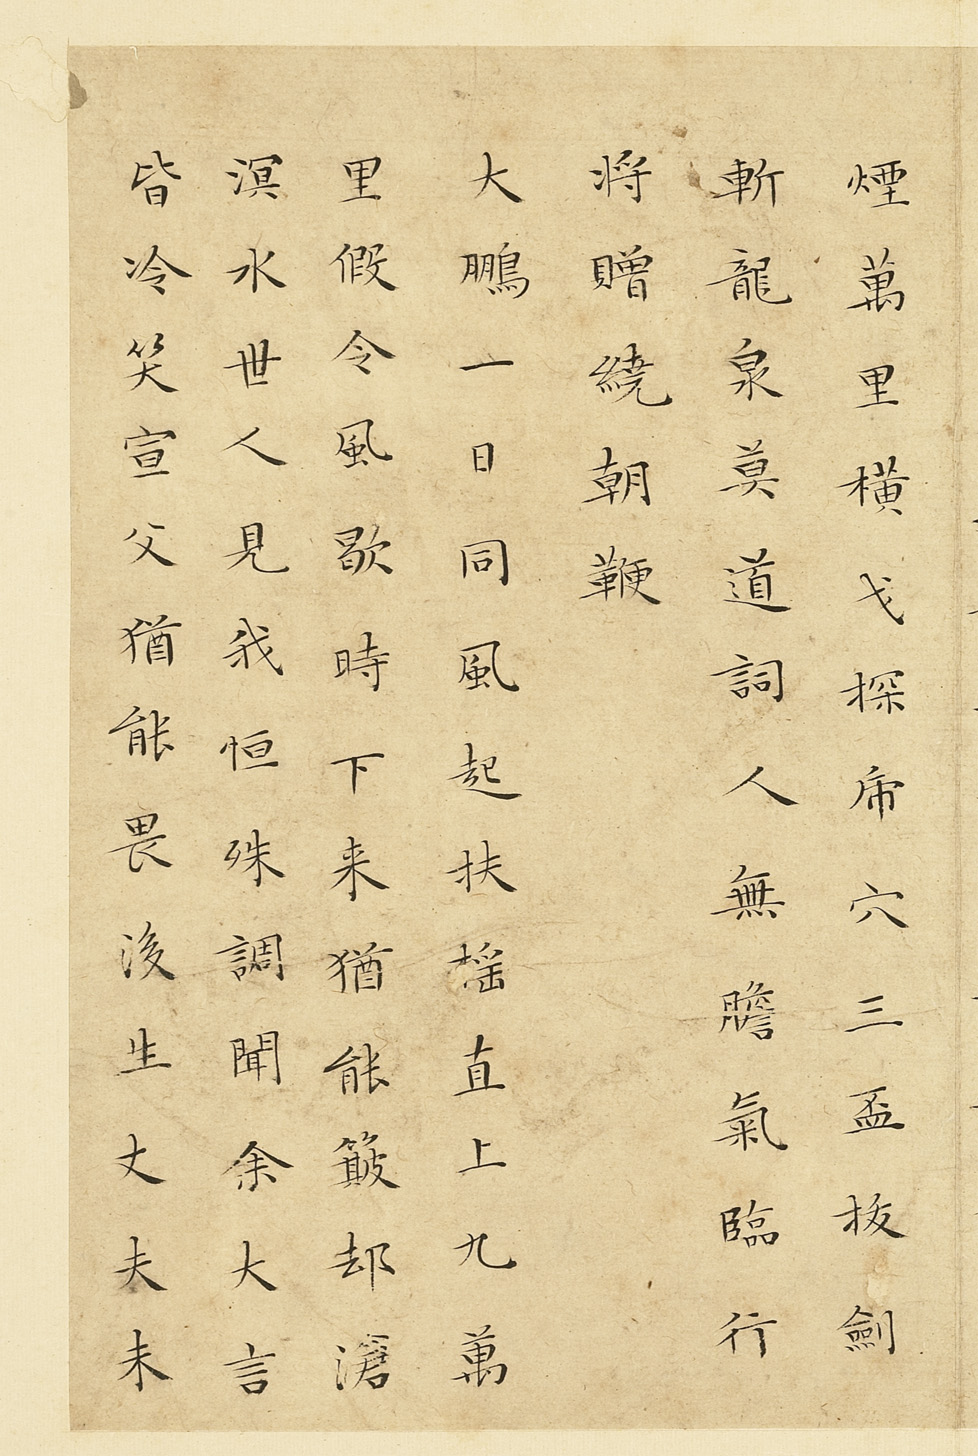 煙萬里橫戈探虎穴三盃拔劍
斬龍泉莫道詞人無膽氣臨行
將贈繞朝鞭
大鵬一日同風起扶搖直上九萬
里假令風歇時下来猶能簸却滄
溟水世人見我恒殊調聞余大言
皆冷笑宣父猶能畏後生丈夫未